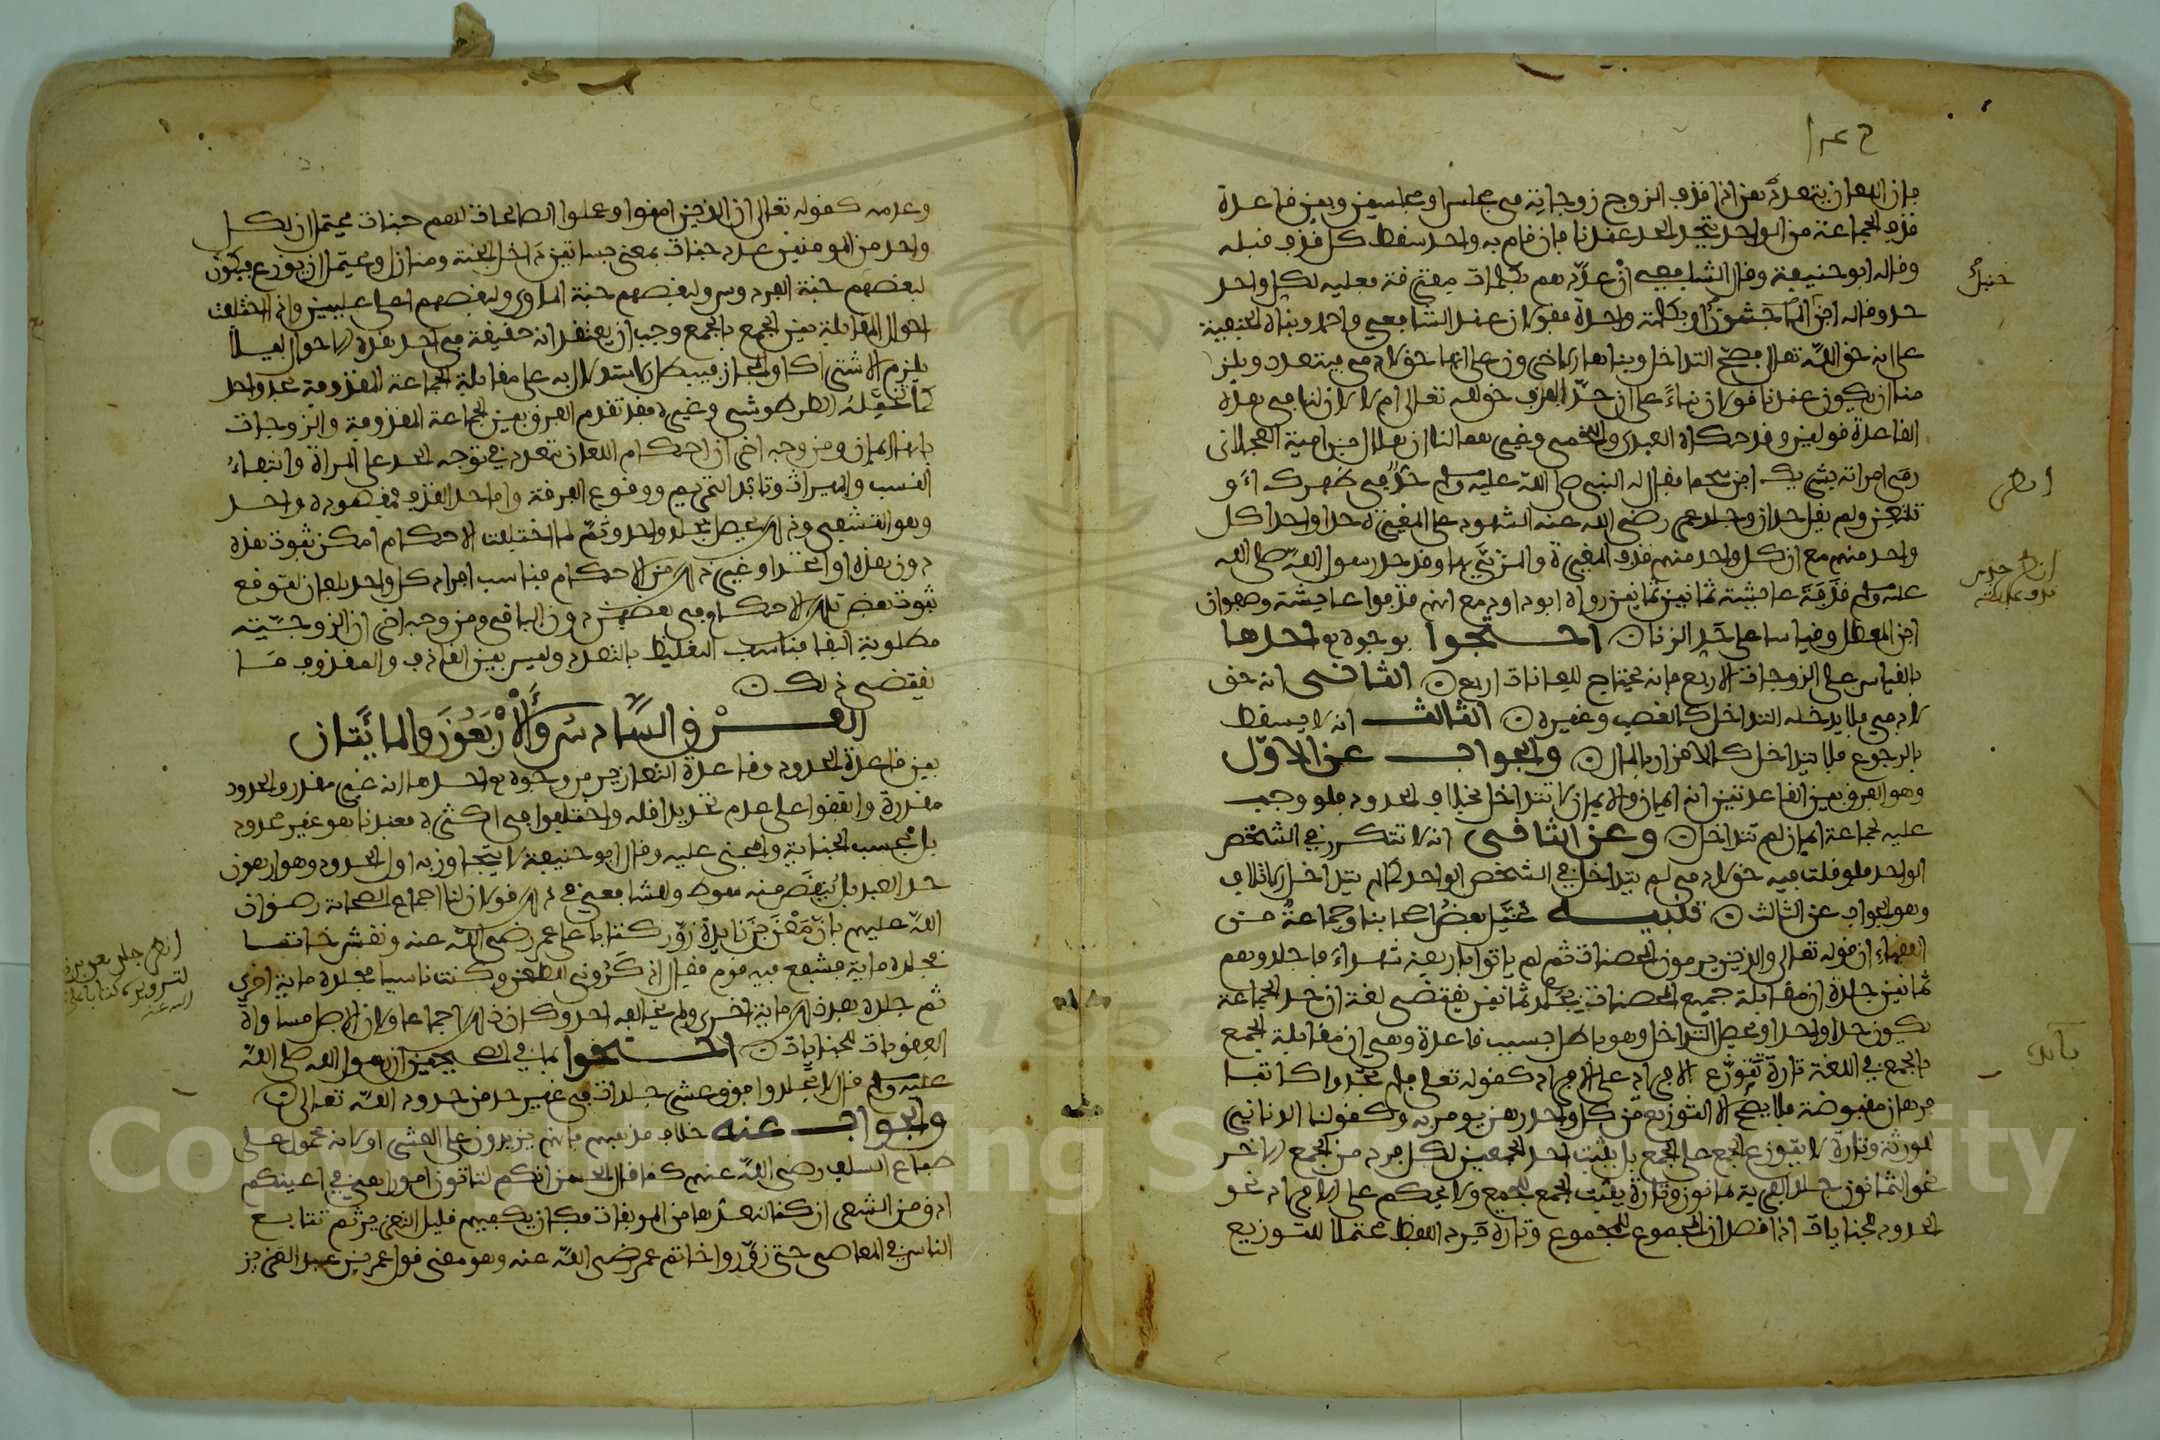 فإن اللعان يتعدد بهن إذا قذف الزوج زوجاته في مجلس أو مجلسين وبين قاعدة
قذف الجماعة من الواحد يتحد الحد عندنا فإن قام به واحد سقط كل قذف قبله
وقاله أبو حنيفة وقال الشافعي إن عدهم بكلمات متفرقة فعليه لكل واحد
حد وقاله ابن الماجشون أو بكلمة واحدة فقولان عند الشافعي وأحمد وبناه الحنفية
على أنه حق لله تعالى فصح التداخل وبناها الآخرون على أنها حق لآدمي فيتعدد ويلزم
منا أن يكون عندنا قولان بناء على أن حد القذف حق لله تعالى أم لا لأن لنا في هذه
القاعدة قولين وقد حكاه العبدي واللخمي وغيرهما لنا أن هلال ابن أمية العجلاني
رمى امرأته بشريك ابن سحما فقال له النبي صلى الله عليه وسلم حد في ظهرك أو
تلتعن ولم يقل حدان وجلد عمر رضي الله عنه الشهود على المغيرة حدا واحدا كل
واحد منهم مع أن كل واحد منهم قذف المغيرة والمزني بها وقد حد رسول الله صلى الله
عليه وسلم قذفة عايشة ثمانين ثمانين رواه أبو داود مع أنهم قذفوا عايشة وصفوان
ابن المعطل وقياسا على حد الزنا احتجوا بوجوه أحدها
بالقياس على الزوجات الأربع فإنه يحتاج للعانات أربع الثاني أنه حق
لآدمي فلا يدخله التداخل كالغصب وغيره الثالث أنه لا يسقط
بالرجوع فلا يتداخل كالإقرار بالمال والجواب عن الأول
وهو الفرق بين القاعدتين أنه أيمان والأيمان لا تتداخل بخلاف الحدود فلو وجب
عليه لجماعة أيمان لم تتداخل وعن الثاني أنه لا تتكرر في الشخص
الواحد فلو غلب فيه حق لآدمي لم يتداخل في الشخص الواحد كما لم يتداخل الإتلاف
وهو الجواب عن الثالث تنبيه تخيل بعض أصحابنا وجماعة من
الفقهاء أن قوله تعالى والذين يرمون المحصنات ثم لم ياتوا بأربعة شهداء فاجلدوهم
ثمانين جلدة أن مقابلة جميع المحصنات بجلد ثمانين يقتضي لغة أن حد الجماعة
يكون حدا واحدا ويحصل التداخل وهو باطل بسبب قاعدة وهي أن مقابلة الجمع
بالجمع في اللغة تارة توزع الأفراد على الأفراد كقوله تعالى فلم تجدوا كاتبا
فرهان مقبوضة فلا يصح إلا التوزيع من كل واحد رهن يومر به وكقولنا الدنانير
للورثة وتارة لا يتوزع الجمع على الجمع بل يثبت أحد الجمعين لكل فرد من الجمع الآخر
نحو الثمانون جلد القرية ثمانون وتارة يثبت الجمع للجمع ولا يحكم على الأفراد نحو
الحدود للجنايات إذا قصد أن المجموع للمجموع وتارة يرد اللفظ محتملا للتوزيع
انظر
وعدمه كقوله تعالى إن الذين آمنوا وعملوا الصالحات لهم جنات يحتمل أن لكل
واحد من المومنين عدد جنات بمعنى بساتين داخل الجنة ومنازل ويحتمل أن يوزع فيكون
لبعضهم جنة الفردوس ولبعضهم جنة الماوى ولبعضهم أعلى عليين وإذ اختلفت
أحوال المقابلة بين الجمع بالجمع وجب أن يعتقد أنه حقيقة في أحد هذه الأحوال ليلا
يلزم الاشتراك أو المجاز فيبطل الاستدلال به على مقابلة الجماعة المقذوفة بحد واحد
كما تخيله الطرطوشي وغيره فقد تقدم الفرق بين الجماعة المقذوفة والزوجات
بأنها أيمان ومن وجه آخر أن أحكام اللعان تتعدد في توجه الحد على المرأة وانتفاء
النسب والميراث وتأبد التحريم ووقوع الفرقة وأما حد القذف فمقصوده واحد
وهو التشفي وذلك يحصل بجلد واحد وثم لما اختلفت الأحكام أمكن ثبوت هذه
دون هذه أو اتحد أو غير ذلك من الأحكام فناسب إفراد كل واحد بلعان لتوقع
ثبوت بعض تلك الأحكام في بعضهن دون الباقي ومن وجه آخر أن الزوجية
مطلوبة البقا فناسب التغليظ بالتعدد وليس بين القاذف والمقذوف ما
يقتضي ذلك
الفرق السادس والأربعون والمائتان
بين قاعدة الحدود وقاعدة التعازير من وجوه أحدها أنه غير مقدر والحدود
مقدرة واتفقوا على عدم تحديد أقله واختلفوا في أكثره فعندنا هو غير محدود
بل بحسب الجناية والمجني عليه وقال أبو حنيفة لا يتجاوز به أول الحدود وهو أربعون
حد العبد بل ينقص منه سوط وللشافعي في ذلك قولان لنا إجماع الصحابة رضوان
الله عليهم بأن معن بن زايدة زور كتابا على عمر رضي الله عنه ونقش خاتما
فجلده ماية فشفع فيه قوم فقال أذكروني الطعن وكنت ناسيا فجلده ماية أخرى
ثم جلده بعد ذلك ماية أخرى ولم يخالفه أحد وكان ذلك إجماعا ولأن الأصل مساواة
العقوبات للجنايات احتجوا بما في الصحيحين أن رسول الله صلى الله
عليه وسلم قال لا تجلدوا فوق عشر جلدات في غير حد من حدود الله تعالى
والجواب عنه خلاف مذهبهم فإنهم يزيدون على العشر أو لأنه محمول على
طباع السلف رضي الله عنهم كما قال الحسن إنكم لتاتون أمورا هي في أعينكم
أدق من الشعر إن كنا لنعدها من الموبقات فكان يكفيهم قليل التعزير ثم تتابع
الناس في المعاصي حتى زوروا خاتم عمر رضي الله عنه وهو معنى قول عمر بن عبد العزيز
Copyright © King Saud University
1957